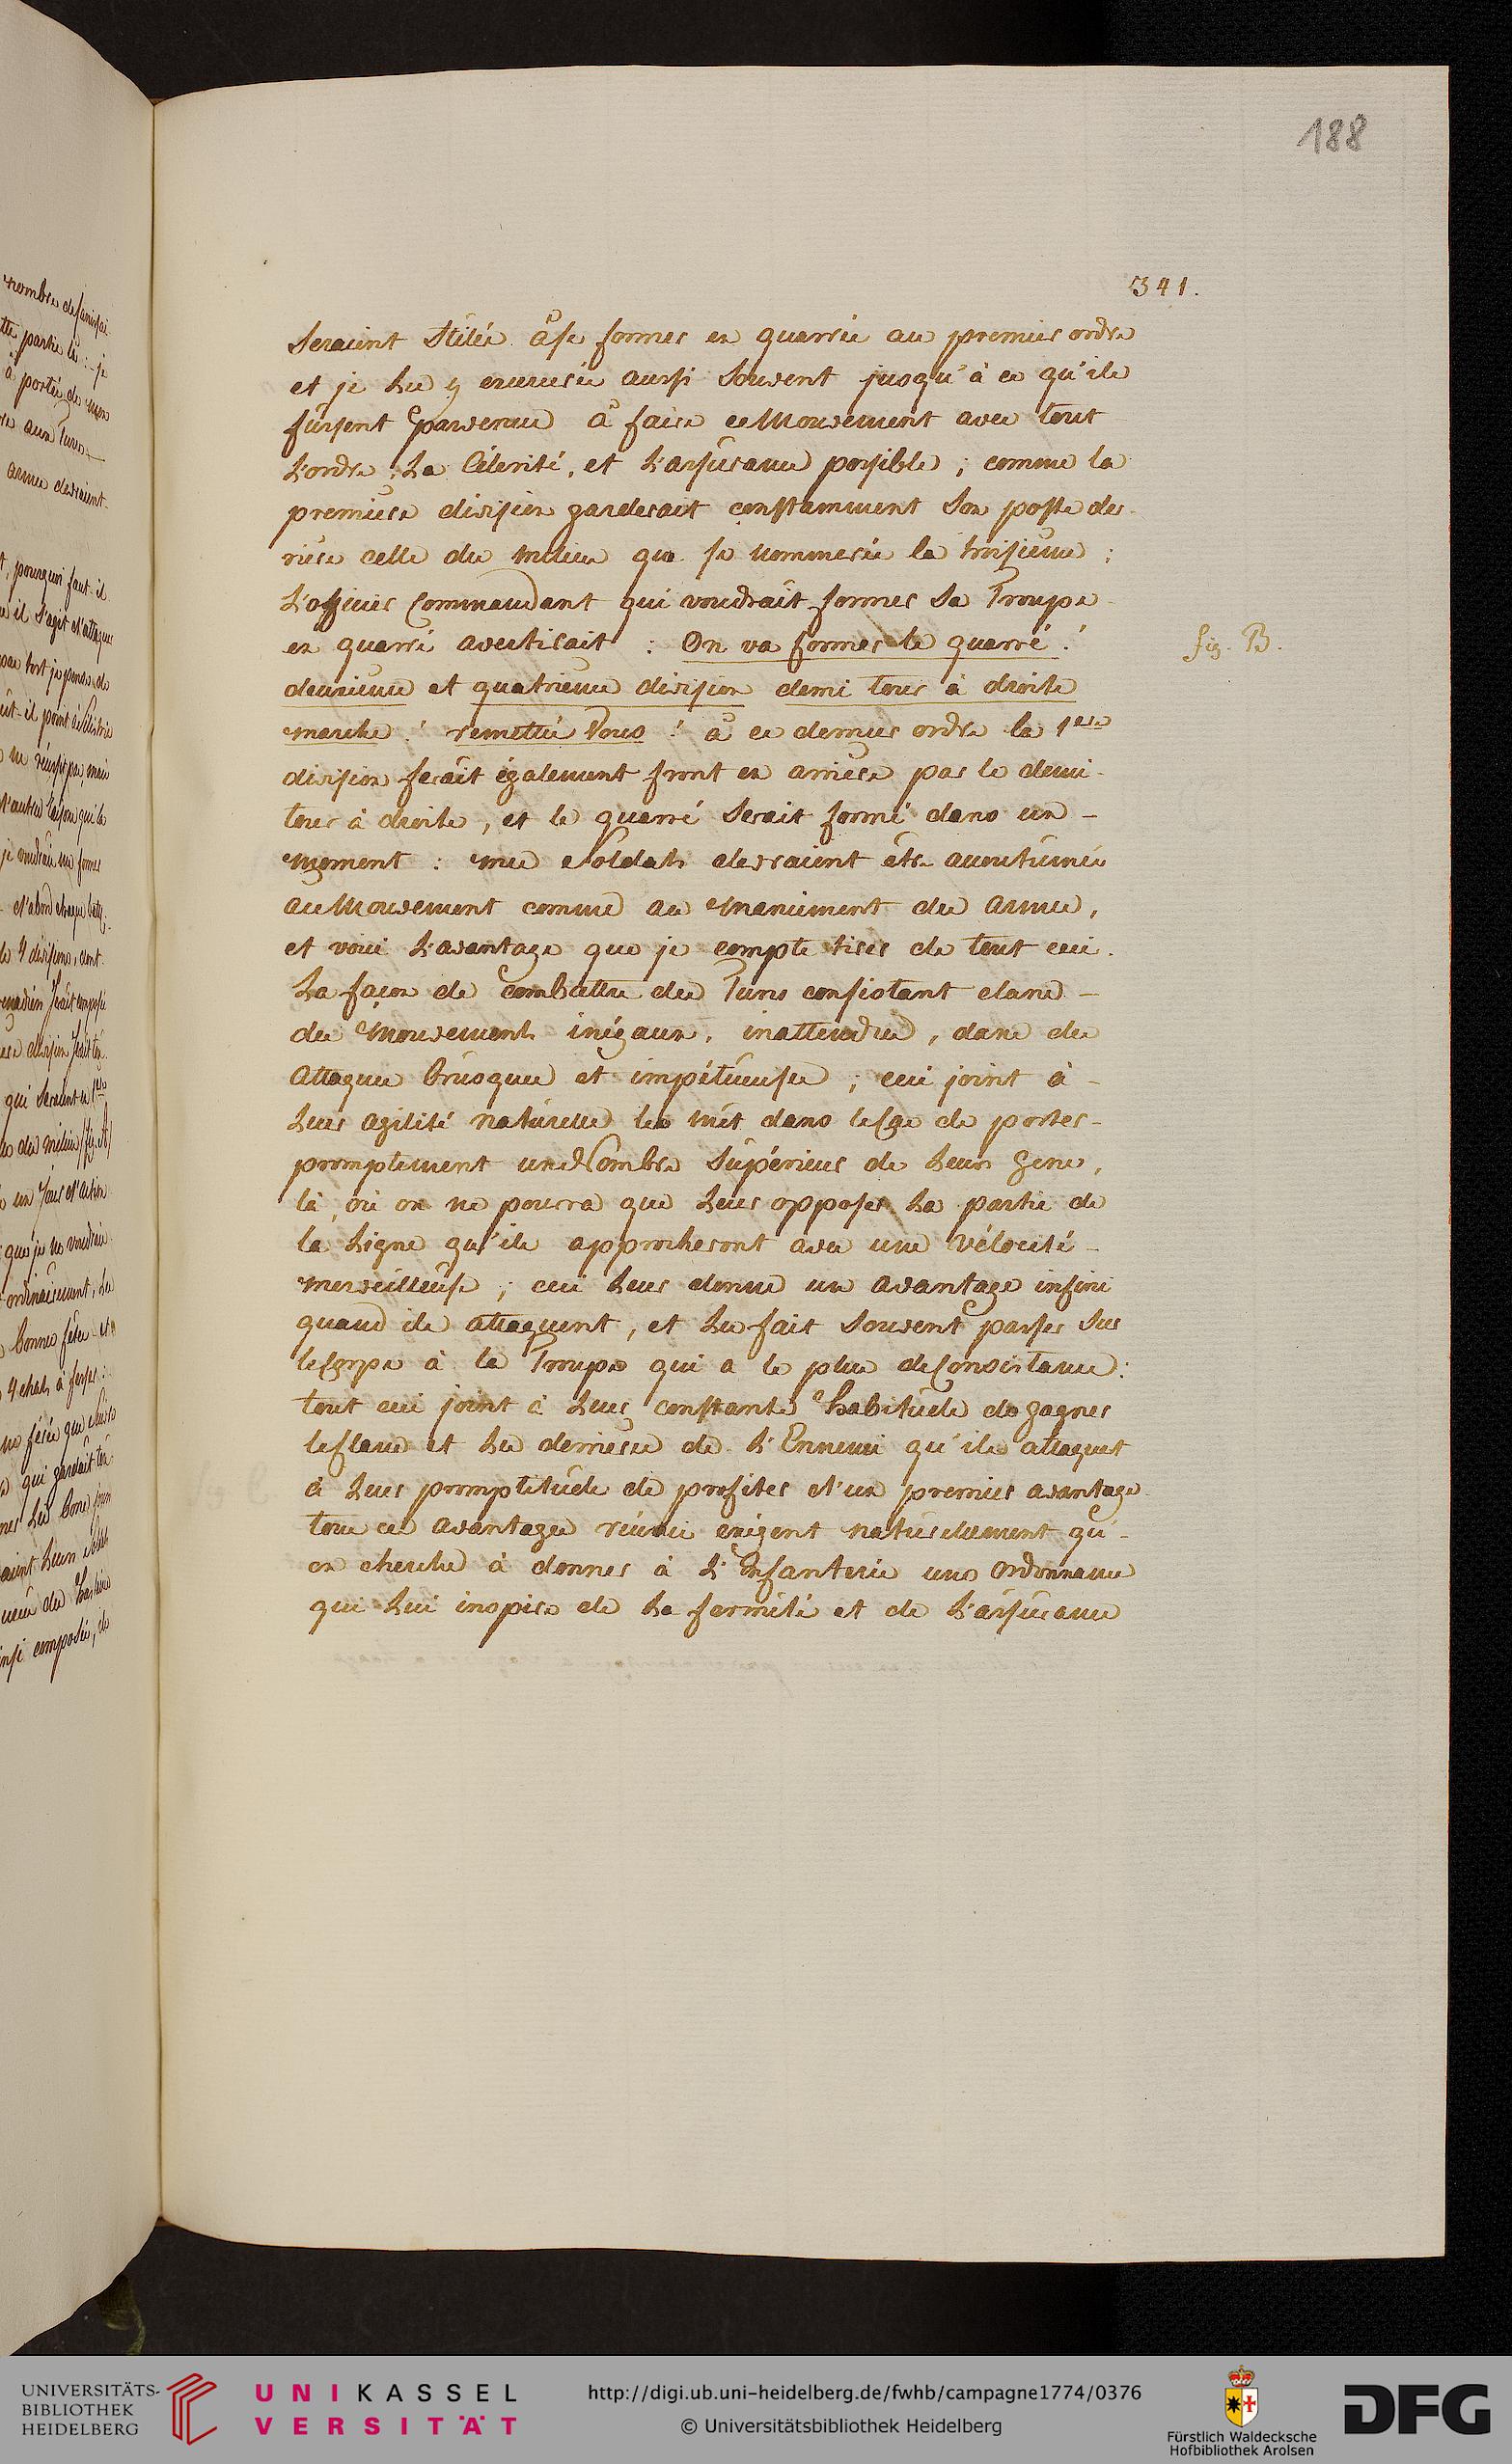 188
341.
Seraient Stilés à se former en quarrés au premier ordre
et je les y exercerés aussi Souvent jusqu'à ce qu'ils
fussent parvenus à faire ce Mouvement avec tout
L'ordre, La Célerité, et L'assurance possible ; comme la
premiere division garderait constamment Son poste der-
riere celle du milieu que je nommerés la troisieme ;
L'officier Commandant qui voudrait former Sa Troupe
en quarré avertirait : On va former le quarré !
fig. B.
deuxieme et quatrieme division demi tour à droite
marche ! remettés Vous ! à ce dernier ordre la 1ere
division ferait également front en arriere par le demi-
tour à droite, et le quarré Serait formé dans un -
moment : mes Soldats devraient être accoutumés
au Mouvement comme au maniment des armes,
et voici L'avantage que je compte tirer de tout ceci.
La façon de Combattre des Turcs consistant dans -
des Mouvements inégaux, inattendus, dans des
Attaques brusques et impétueuses ; ceci joint à -
Leur agilité naturelle les mèt dans le Cas de porter -
promptement un Nombre Supérieur de Leurs Gens,
là, où on ne pourra que Leur opposer La partie de
la Ligne qu'ils approcheront avec une Vélocité -
merveilleuse ; ceci Leur donne un avantage infini
quand ils attaquent, et Les fait Souvent passer Sur
le Corps à la Troupe qui a le plus de Consistance :
tout ceci joint à Leur constante habitude de gagner
le flanc et Les derrieres de L'Ennemi qu'ils attaquent
à Leur promptitude de profiter d'un premier avantage
tous ces avantages réunis exigent naturellement qu'-
on cherche à donner à L'Infanterie une Ordonnance
qui Lui inspire de La fermeté et de L'assurance
UNIVERSITÄTS-
BIBLIOTHEK
HEIDELBERG
UNIKASSEL
VERSITÄT
http://digi.ub.uni-heidelberg.de/fwhb/campagne1774/0376
© Universitätsbibliothek Heidelberg
Fürstlich Waldecksche
Hofbibliothek Arolsen
DFG